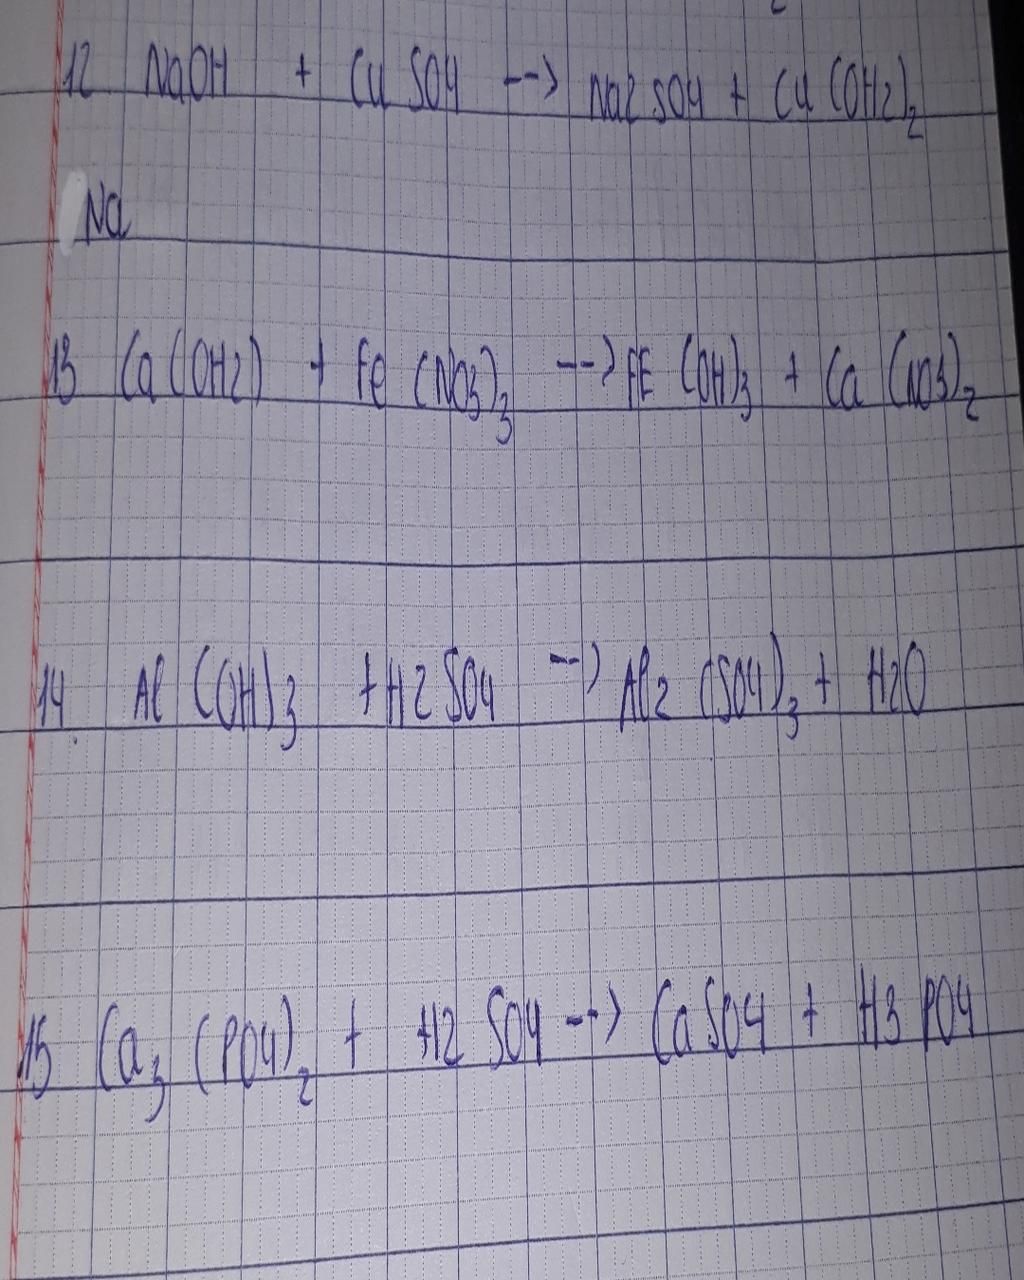 12 NaOH + Cu SO4 --> Na2 SO4 + Cu (OH2)2
Na
13 Ca (OH2) + Fe (NO3)3 --> FE (OH)3 + Ca (NO3)2
14 Al (OH)3 + H2 SO4 --> Al2 (SO4)3 + H2O
15 Ca3 (PO4)2 + H2 SO4 --> Ca SO4 + H3 PO4